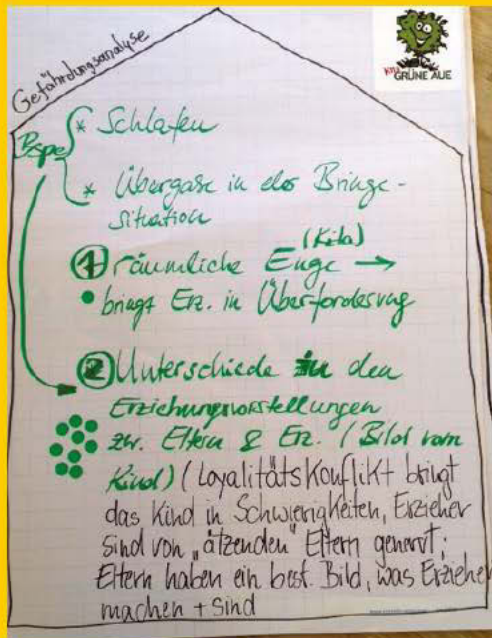 Kita
GRÜNE AUE
Gefährdungsanalyse
Bspe
* Schlafen
* Übergabe in der Bringe-
situation
(Kita)
1 räumliche Enge →
• bringt Erz. in Überforderung
2 Unterschiede in den
Erziehungsvorstellungen
zw. Eltern & Erz. (Bild vom
Kind) (Loyalitätskonflikt bringt
das Kind in Schwierigkeiten, Erzieher
sind von „ätzenden" Eltern genervt;
Eltern haben ein best. Bild, was Erzieher
machen + sind